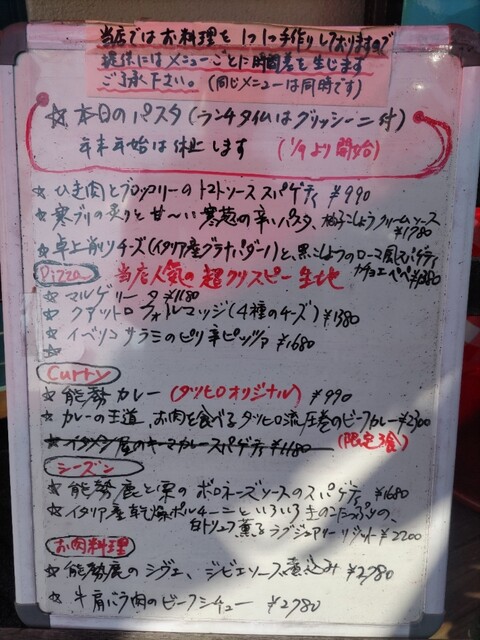 当店ではお料理を1つ1つ手作りしておりますので
提供にはメニューごとに時間差を生じます
ご了承下さい。(同じメニューは同時です)
☆本日のパスタ(ランチタイムはグリッシーニ付)
年末年始は休止します (1/9より開始)
☆ひき肉とブロッコリーのトマトソーススパゲティ ¥990
☆寒ブリの炙りと甘〜い寒葱の辛いパスタ、柚子こしょうクリームソース
¥1780
☆卓上削りチーズ(イタリア産グラナパダーノ)と、黒こしょうのローマ風スパゲティ
カチョエペペ¥1380
Pizza 当店人気の超クリスピー生地
☆マルゲリータ¥1180
☆クアットロフォルマッジ(4種のチーズ)¥1380
☆イベリコサラミのピリ辛ピッツァ ¥1680
☆
Curry
☆能勢カレー(タツヒロオリジナル) ¥990
☆カレーの王道、お肉を食べるタツヒロ流圧巻のビーフカレー¥2300
☆イタリアン屋のキーマカレースパゲティ¥1180 (限定3食)
シーズン
☆能勢鹿と栗のボロネーズソースのスパゲティ ¥1680
☆イタリア産乾燥ポルチーニといろいろきのこたっぷりの、
白トリュフ薫るラグジュアリーリゾット¥2200
お肉料理
☆能勢鹿のシヴェ、ジビエソース煮込み ¥2980
☆牛肩バラ肉のビーフシチュー ¥2980